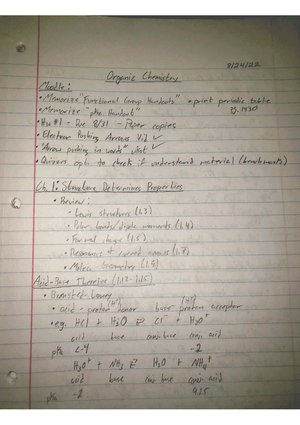 8/24/22
Organic Chemistry
Moodle:
• Memorize "Functional Group Handouts" * print periodic table
• Memorize "pka Handout"
• HW #1 - Due 8/31 - Paper copies
• Electron Pushing Arrows Vid ✓
• "Arrow pushing in words" wkst ✓
• Quizzes opt. to check if understand material (benchmarks)
Ch. 1: Structure Determines Properties
• Review:
• Lewis structures (1.3)
• Polar bonds/dipole moments (1.4)
• Formal charge (1.5)
• Resonance + curved arrows
• Molec. Geometry
Acid-Base Theories
• Bronsted-Lowry
• acid - proton donor base - proton acceptor
(H⁺) (H⁺)
• eg. HCl + H₂O ⇄ Cl⁻ + H₃O⁺
acid base conj. base conj. acid
pKa -2
H₃O⁺ + NH₃ ⇄ H₂O + NH₄⁺
acid base conj. base conj. acid
pKa -2